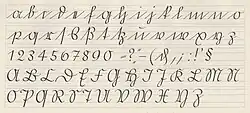 a b c d e f g h i j k l m n o
p q r s ß t u v w x y z
1 2 3 4 5 6 7 8 9 0 - ? ' = ( & , ; : ! " §
A B C D E F G H I J K L M N
O P Q R S T U V W X Y Z